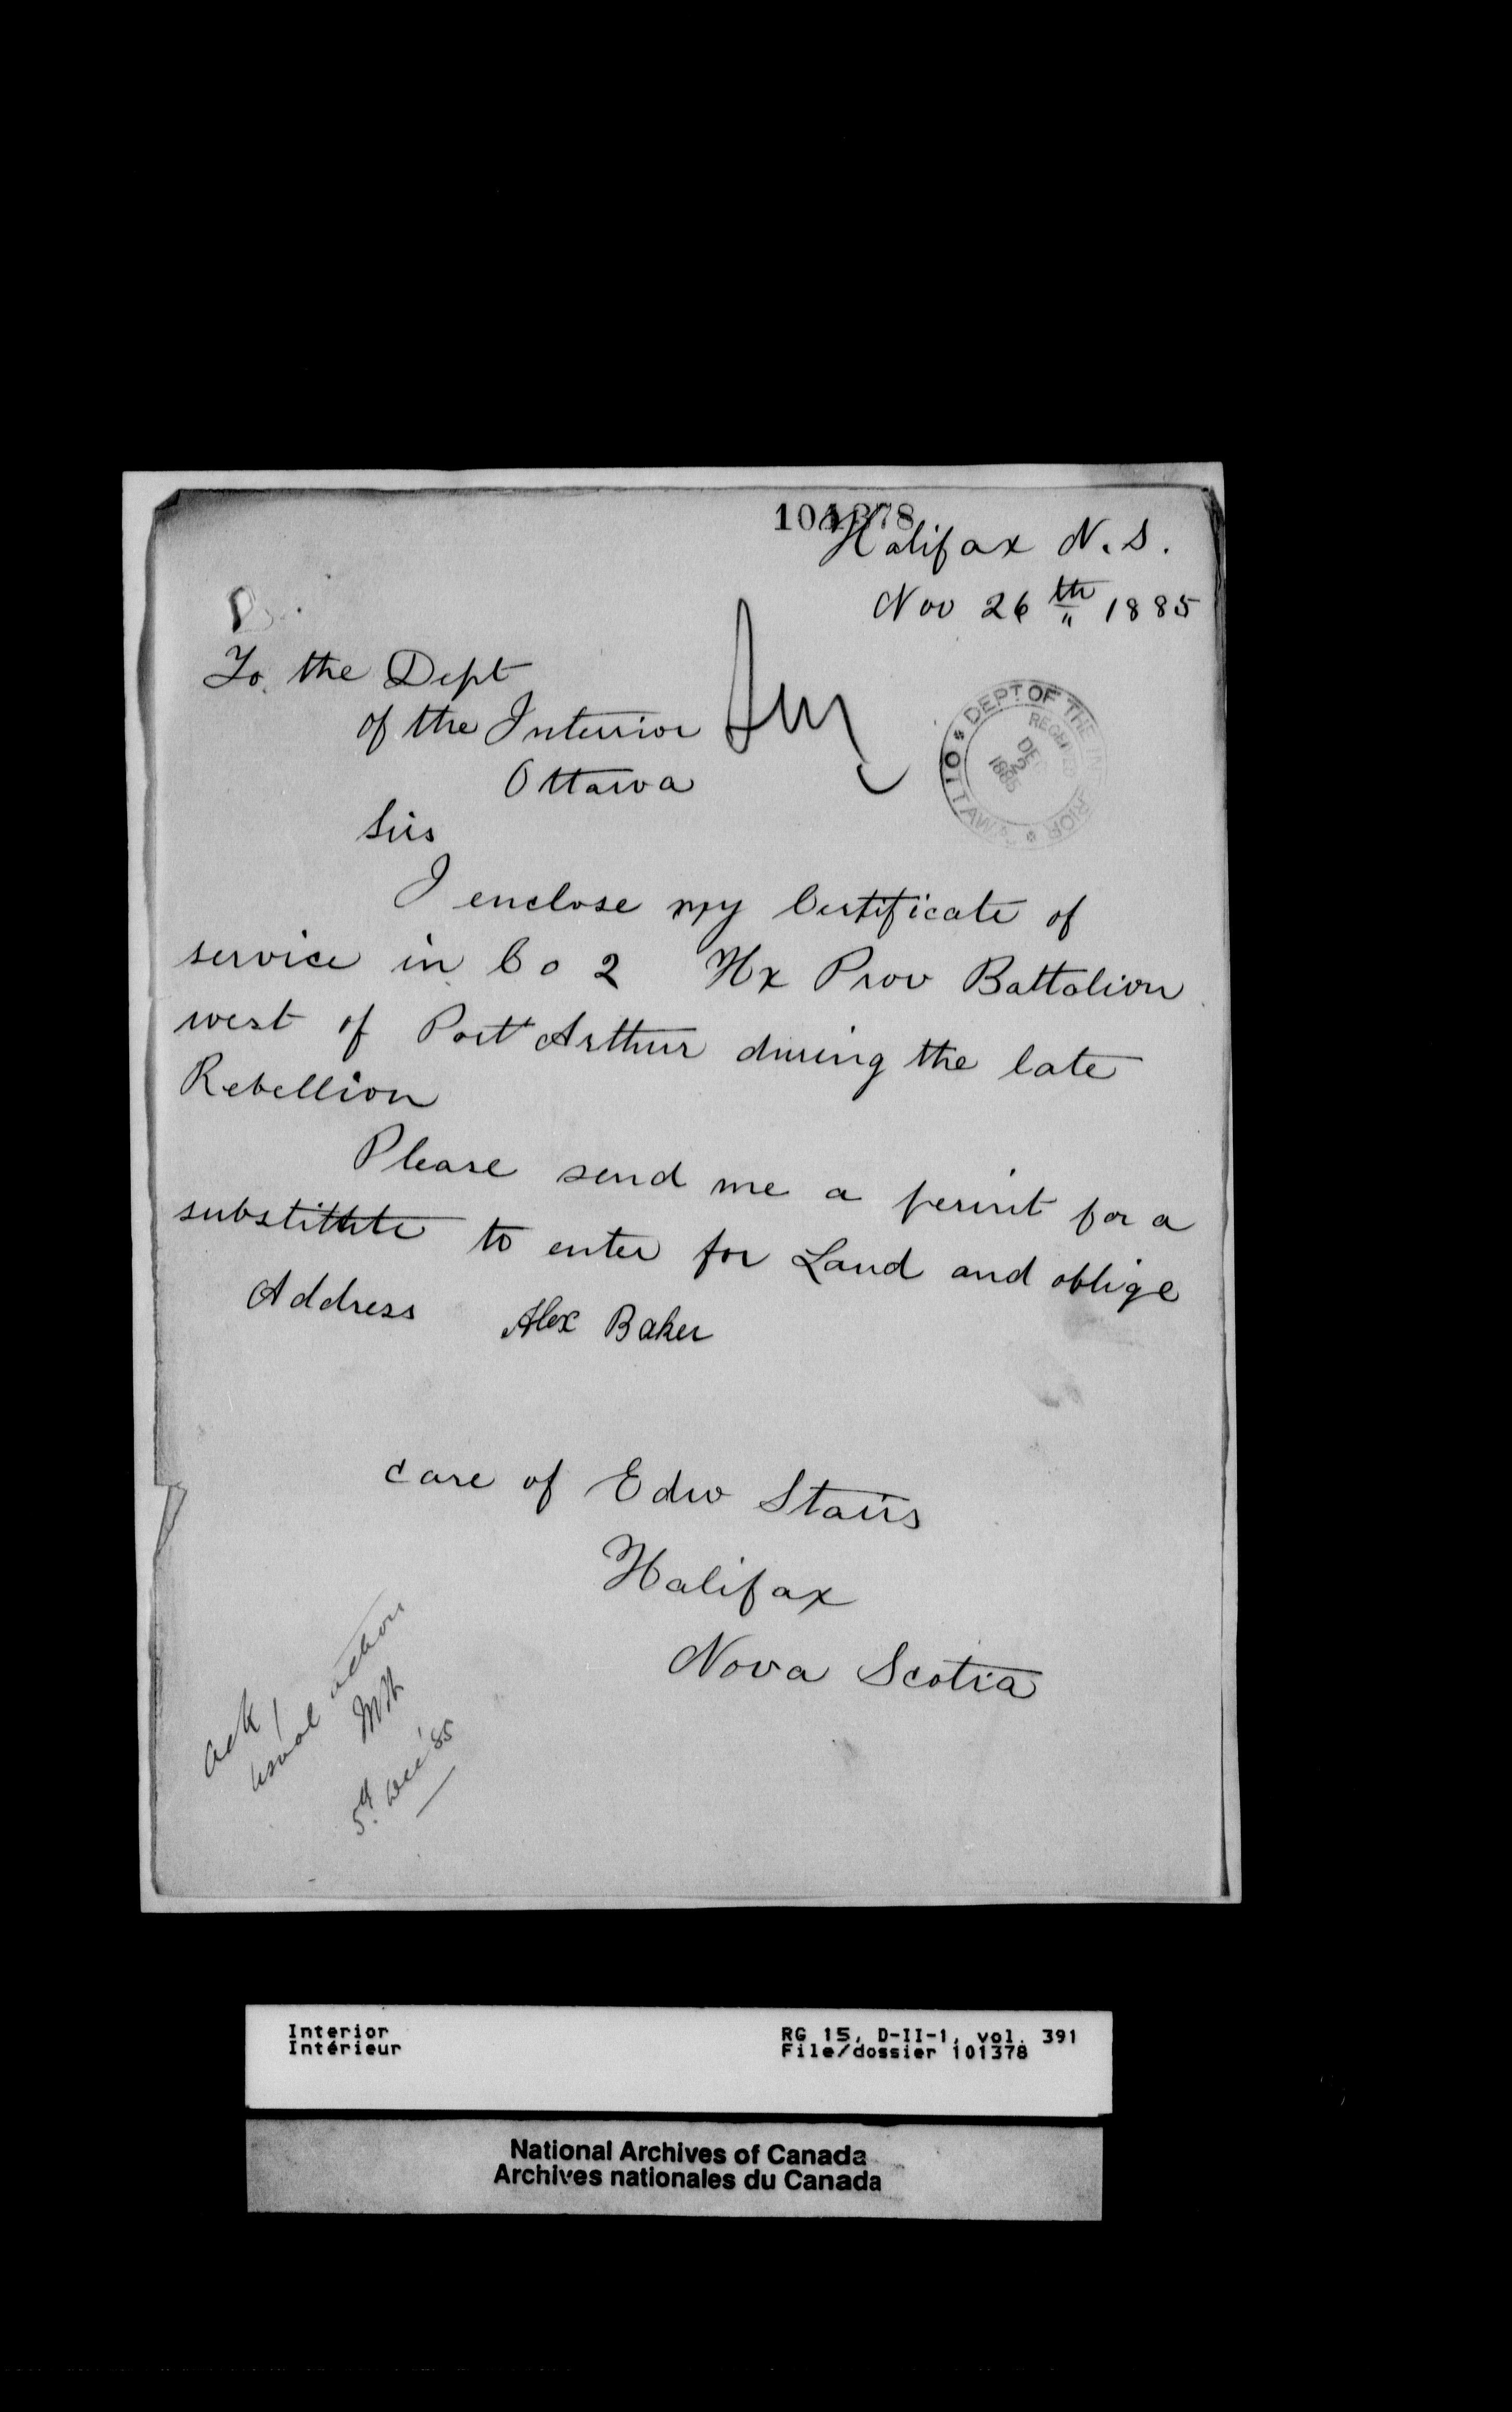 101378
Halifax N.S.
Nov 26th 1885
To the Dept
of the Interior
Ottawa
Sirs
I enclose my Certificate of
service in Co 2 Hx Prov Battalion
west of Port Arthur during the late
Rebellion
Please send me a permit for a
substitute to enter for Land and oblige
Address Alex Baker
care of Edw Stairs
Halifax
Nova Scotia
DEPT OF THE INTERIOR
OTTAWA
RECEIVED
DEC 2
1885
ack
usual action
5th Dec '85
Interior
Intérieur
RG 15, D-II-1, vol. 391
File/dossier 101378
National Archives of Canada
Archives nationales du Canada